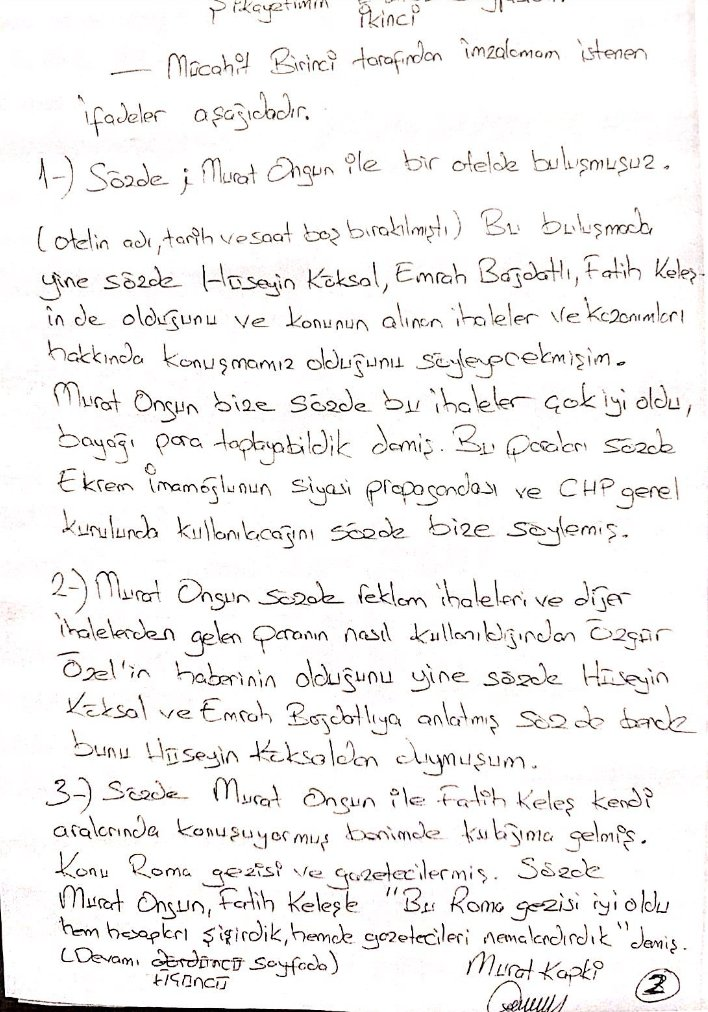 Şikayetimin İkinci
— Mücahit Birinci tarafından imzalamam istenen
ifadeler aşağıdadır.
1-) Sözde ; Murat Ongun ile bir otelde buluşmuşuz.
(otelin adı, tarih ve saat boş bırakılmıştı) Bu buluşmada
yine sözde Hüseyin Köksal, Emrah Bağdatlı, Fatih Keleş-
in de olduğunu ve konunun alınan ihaleler ve kazanımları
hakkında konuşmamız olduğunu söyleyecekmişim.
Murat Ongun bize sözde bu ihaleler çok iyi oldu,
bayağı para toplayabildik demiş. Bu paraları sözde
Ekrem İmamoğlunun siyasi propagandası ve CHP genel
kurulunda kullanılacağını sözde bize söylemiş.
2-) Murat Ongun sözde reklam ihaleleri ve diğer
ihalelerden gelen paranın nasıl kullanıldığından Özgür
Özel'in haberinin olduğunu yine sözde Hüseyin
Köksal ve Emrah Bağdatlıya anlatmış sözde bende
bunu Hüseyin Köksaldan duymuşum.
3-) Sözde Murat Ongun ile Fatih Keleş kendi
aralarında konuşuyormuş benimde kulağıma gelmiş.
Konu Roma gezisi ve gazetecilermiş. Sözde
Murat Ongun, Fatih Keleşe "Bu Roma gezisi iyi oldu
hem hesapları şişirdik, hemde gazetecileri nemalandırdık" demiş.
(Devamı dördüncü sayfada)
+ üçüncü
Murat Kapki
2